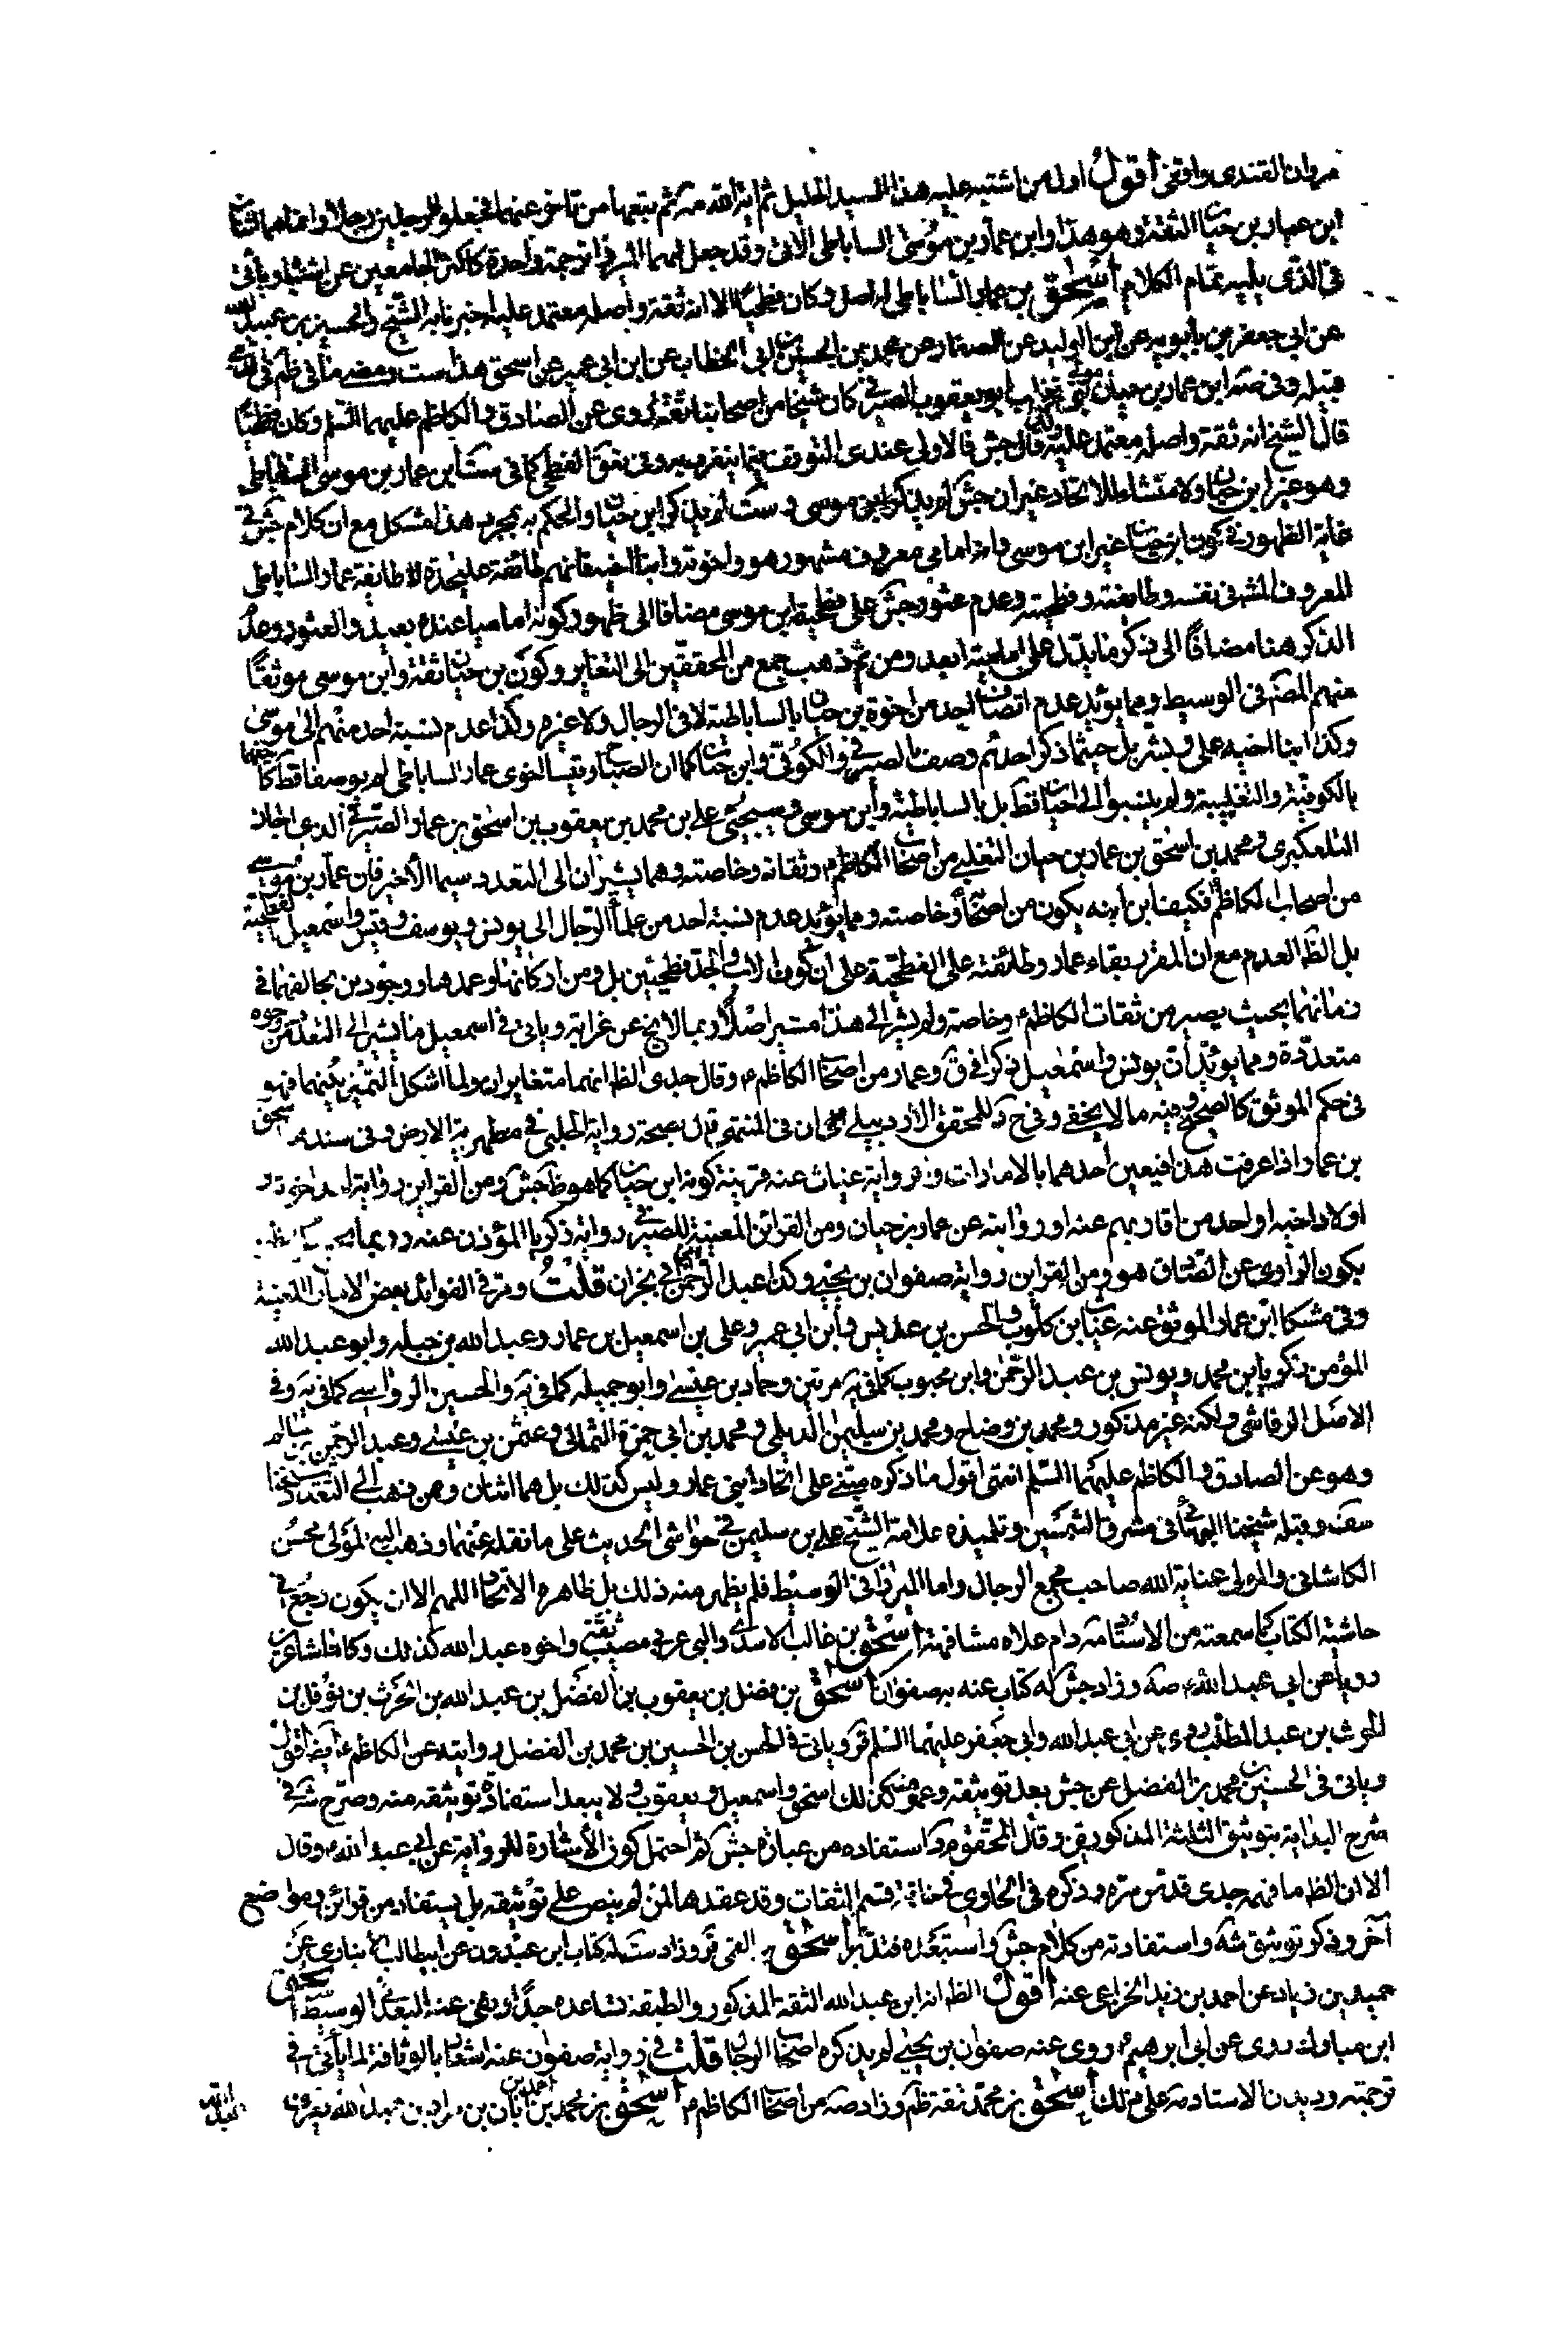 مروان القندى واقفى أقول اول من اشتبه عليه هذا السيد الجليل ثم اية الله مه ثم تبعهما من تاخر عنهما فجعلوا الرجلين رجلا وانما هما اثنان
ابن عمار بن حيان الثقة وهو هذا وابن عمار بن موسى الساباطى الاتى وقد جعل لهما الميرزا ترجمة واحدة كاكثر الجامعين عن اشتباه ويأتى
فى الذى يليه تمام الكلام اسحق بن عمار الساباطى له اصل وكان فطحيا الا انه ثقة واصله معتمد عليه اخبرنا به الشيخ والحسين بن عبيد الله
عن ابى جعفر بن بابويه عن ابن الوليد عن الصفار عن محمد بن الحسين بن ابى الخطاب عن ابن ابى عمير عن اسحق هذا ست ومضى ما فى ظم فى الذى
قبله وفى صه ابن عمار بن حيان مولى بنى تغلب ابو يعقوب الصيرفى كان شيخا من اصحابنا ثقة روى عن الصادق والكاظم عليهما السلم وكان فطحيا
قال الشيخ انه ثقة واصله معتمد عليه وكذا قال جش فالاولى عندى التوقف فيما ينفرد به وفى تعق الفطحى كما فى ست ابن عمار بن موسى الساباطى
وهو غير ابن حيان ولا منشأ للاتحاد غير ان جش لم يذكر ابن موسى وست لم يذكر ابن حيان والحكم به بمجرد هذا مشكل مع ان كلام جش فى
غاية الظهور فى كون ابن حيان غير ابن موسى وانه امامى معروف مشهور هو واخوته وابنا اخيه فانهم طائفة عليحدة لا طائفة عمار الساباطى
المعروف المشهـ فى نفسه وطايفته وفطحيته وعدم عثور جش على فطحية ابن موسى مضافا الى ظهور كونه اماميا عنده بعيد والعثور وعدم
الذكر هنا مضافا الى ذكر ما يدل على اماميته ابعد ومن ثم ذهب جمع من المحققين الى التغاير وكون بن حيان ثقة وابن موسى موثقا
منهم المصنف فى الوسيط ومما يؤيد عدم اتصاف احد من اخوة بن حيان بالساباطية لا فى الرجال ولا غيره وكذا عدم نسبة احد منهم الى موسى
وكذا ابنا اخيه على وبشر بل حيثما ذكر احدهم وصف بالصيرفى والكوفى وابن حيان كما ان الصباح وقيسا اخوى عمار الساباطى لم يوصفا قط كا
بالكوفية والتغلبية ولم ينسبوا الى حيان قط بل بالساباطية وابن موسى وسيجئ على بن محمد بن يعقوب بن اسحق بن عمار الصيرفى الذى اخذ
التلعكبرى ومحمد بن اسحق بن عمار بن حيان التغلبى من اصحاب الكاظم ع وثقاته وخاصته وهما يشيران الى التعدد سيما الاخير فان عمار بن موسى
من اصحاب الكاظم ع فكيف ابن ابنه يكون من اصحابه وخاصته ومما يؤيد عدم نسبة احد من علماء الرجال الى يونس ويوسف وقيس واسمعيل الفطحية
بل الظ العدم مع ان المقرر بقاء عمار وطائفته على الفطحية على ان كون الاب والجد فطحيين بل ومن اركانها وعمدها ووجود من يخالفهما فى
زمانهما بحيث يصير من ثقات الكاظم ع وخاصته ولم يشر الى هذا مشير اصلا ربما لا يخ عن غرابة وياتى فى اسمعيل ما يشير الى التعدد من وجوه
متعددة ومما يؤيد ان يونس واسمعيل ذكرا فى ق وعمار من اصحاب الكاظم ع وقال جدى الظ انهما متغايران ولما اشكل التميز بينهما فهو
فى حكم الموثق كالصحيح وفيه ما لا يخفى وفى ح د للمحقق الاردبيلى ان فى المنتهى قال بصحة رواية الحلبى فى مطهرية الارض وفى سنده اسحق
بن عمار اذا عرفت هذا فتعين احدهما بالامارات ورواية غياث عنه قرينة كونه ابن حيان كما هو ظ جش ومن القراين رواية احد اخوته
اولاد اخيه او احد من اقاربهم عنه او روايته عن عمار بن حيان ومن القرائن المعينة للصيرفى رواية ذكريا المؤذن عنه
يكون الراوى عن الصادق هو ومن القراين رواية صفوان بن يحيى وكذا عبد الرحمن بن ابى نجران قلت ومر فى الفوائد بعض الاسباب المعينة
وفى مشكا ابن عمار الموثق عنه غياث بن كلوب والحسن بن عديس وابن ابى عمير وعلى بن اسمعيل بن عمار وعبد الله بن جبلة وابو عبد الله
المؤمن زكريا بن محمد ويونس بن عبد الرحمن وابن محبوب كما فى يه مرتين وحماد بن عيسى وابو جميلة كما فى يه والحسين الرواسى كما فى يه وفى
الاصل الرقاشى ولكنه غير مذكور ومحمد بن وضاح ومحمد بن سليمن الديلمى ومحمد بن ابى حمزة الثمالى وعثمن بن عيسى وعبد الرحمن بن سالم
وهو عن الصادق والكاظم عليهما السلم انتهى اقول ما ذكره مبنى على اتحاد ابنى عمار وليس كذلك بل هما اثنان وممن ذهب الى التعدد شيخنا
سفه وقبله شيخنا البهائى فى مشرق الشمسين وتلميذه علامة الشيخ على بن سليمن فى حواشى الحديث على ما نقله عنهما وذهب اليه المولى محسن
الكاشانى والمولى عناية الله صاحب مجمع الرجال واما الميرزا فى الوسيط فلم يظهر منه ذلك بل ظاهره الاتحاد اللهم الا ان يكون رجع فى
حاشية الكتاب كما سمعته من الاستاد مه دام علاه مشافهة اسحق بن غالب الاسدى والبى عربى صليب ثقة واخوه عبد الله كذلك وكانا شاعرين
رويا عن ابى عبد الله ع صه وزاد جش له كتاب عنه به صفوان اسحق بن فضل بن يعقوب بن الفضل بن عبد الله بن الحرث بن نوفل بن
الحرث بن عبد المطلب روى عن ابى عبد الله وابى جعفر عليهما السلم ق وياتى فى الحسن بن الحسين بن محمد بن الفضل روايته عن الكاظم ع ايضا اقول
وياتى فى الحسين بن محمد بن الفضل عن جش بعد توثيقه وعمومته كذلك اسحق واسمعيل ويعقوب ولا يبعد استفادة توثيقه منه وصرح شه فى
شرح البداية بتوثيق الثلثة المذكورين وقال المحقق مد استفاده من عبارة جش ثم احتمل كون الاشارة للرواية عن ابى عبد الله ع وقال
الا ان الظ ما فهمه جدى قدس سره وذكره فى الحاوى فى خاتمة قسم الثقات وقد عقدها لمن لم ينص على توثيقه بل يستفاد من قرائن ومواضع
آخر وذكر توثيق شه واستفادته من كلام جش واستبعده فتدبر اسحق القمى قر وزاد ست له كتاب ابن عبدون عن ابيطالب الانبارى عن
حميد بن زياد عن احمد بن زيد الخزاعى عنه اقول الظ انه ابن عبد الله الثقة المذكور والطبقة تساعده جدا ونفى عنه البعد فى الوسيط اسحق
ابن مبارك روى عن ابى ابرهيم ع روى عنه صفوان بن يحيى لم يذكره اصحاب الرجال قلت فى رواية صفوان عنه اشعار بالوثاقة لما ياتى فى
ترجمته وديدن الاستاد مه على ذلك اسحق بن محمد ثقة ظم وزاد صه من اصحاب الكاظم ع اسحق بن محمد بن احمد بن ابان بن مرار بن عبد الله يعرف